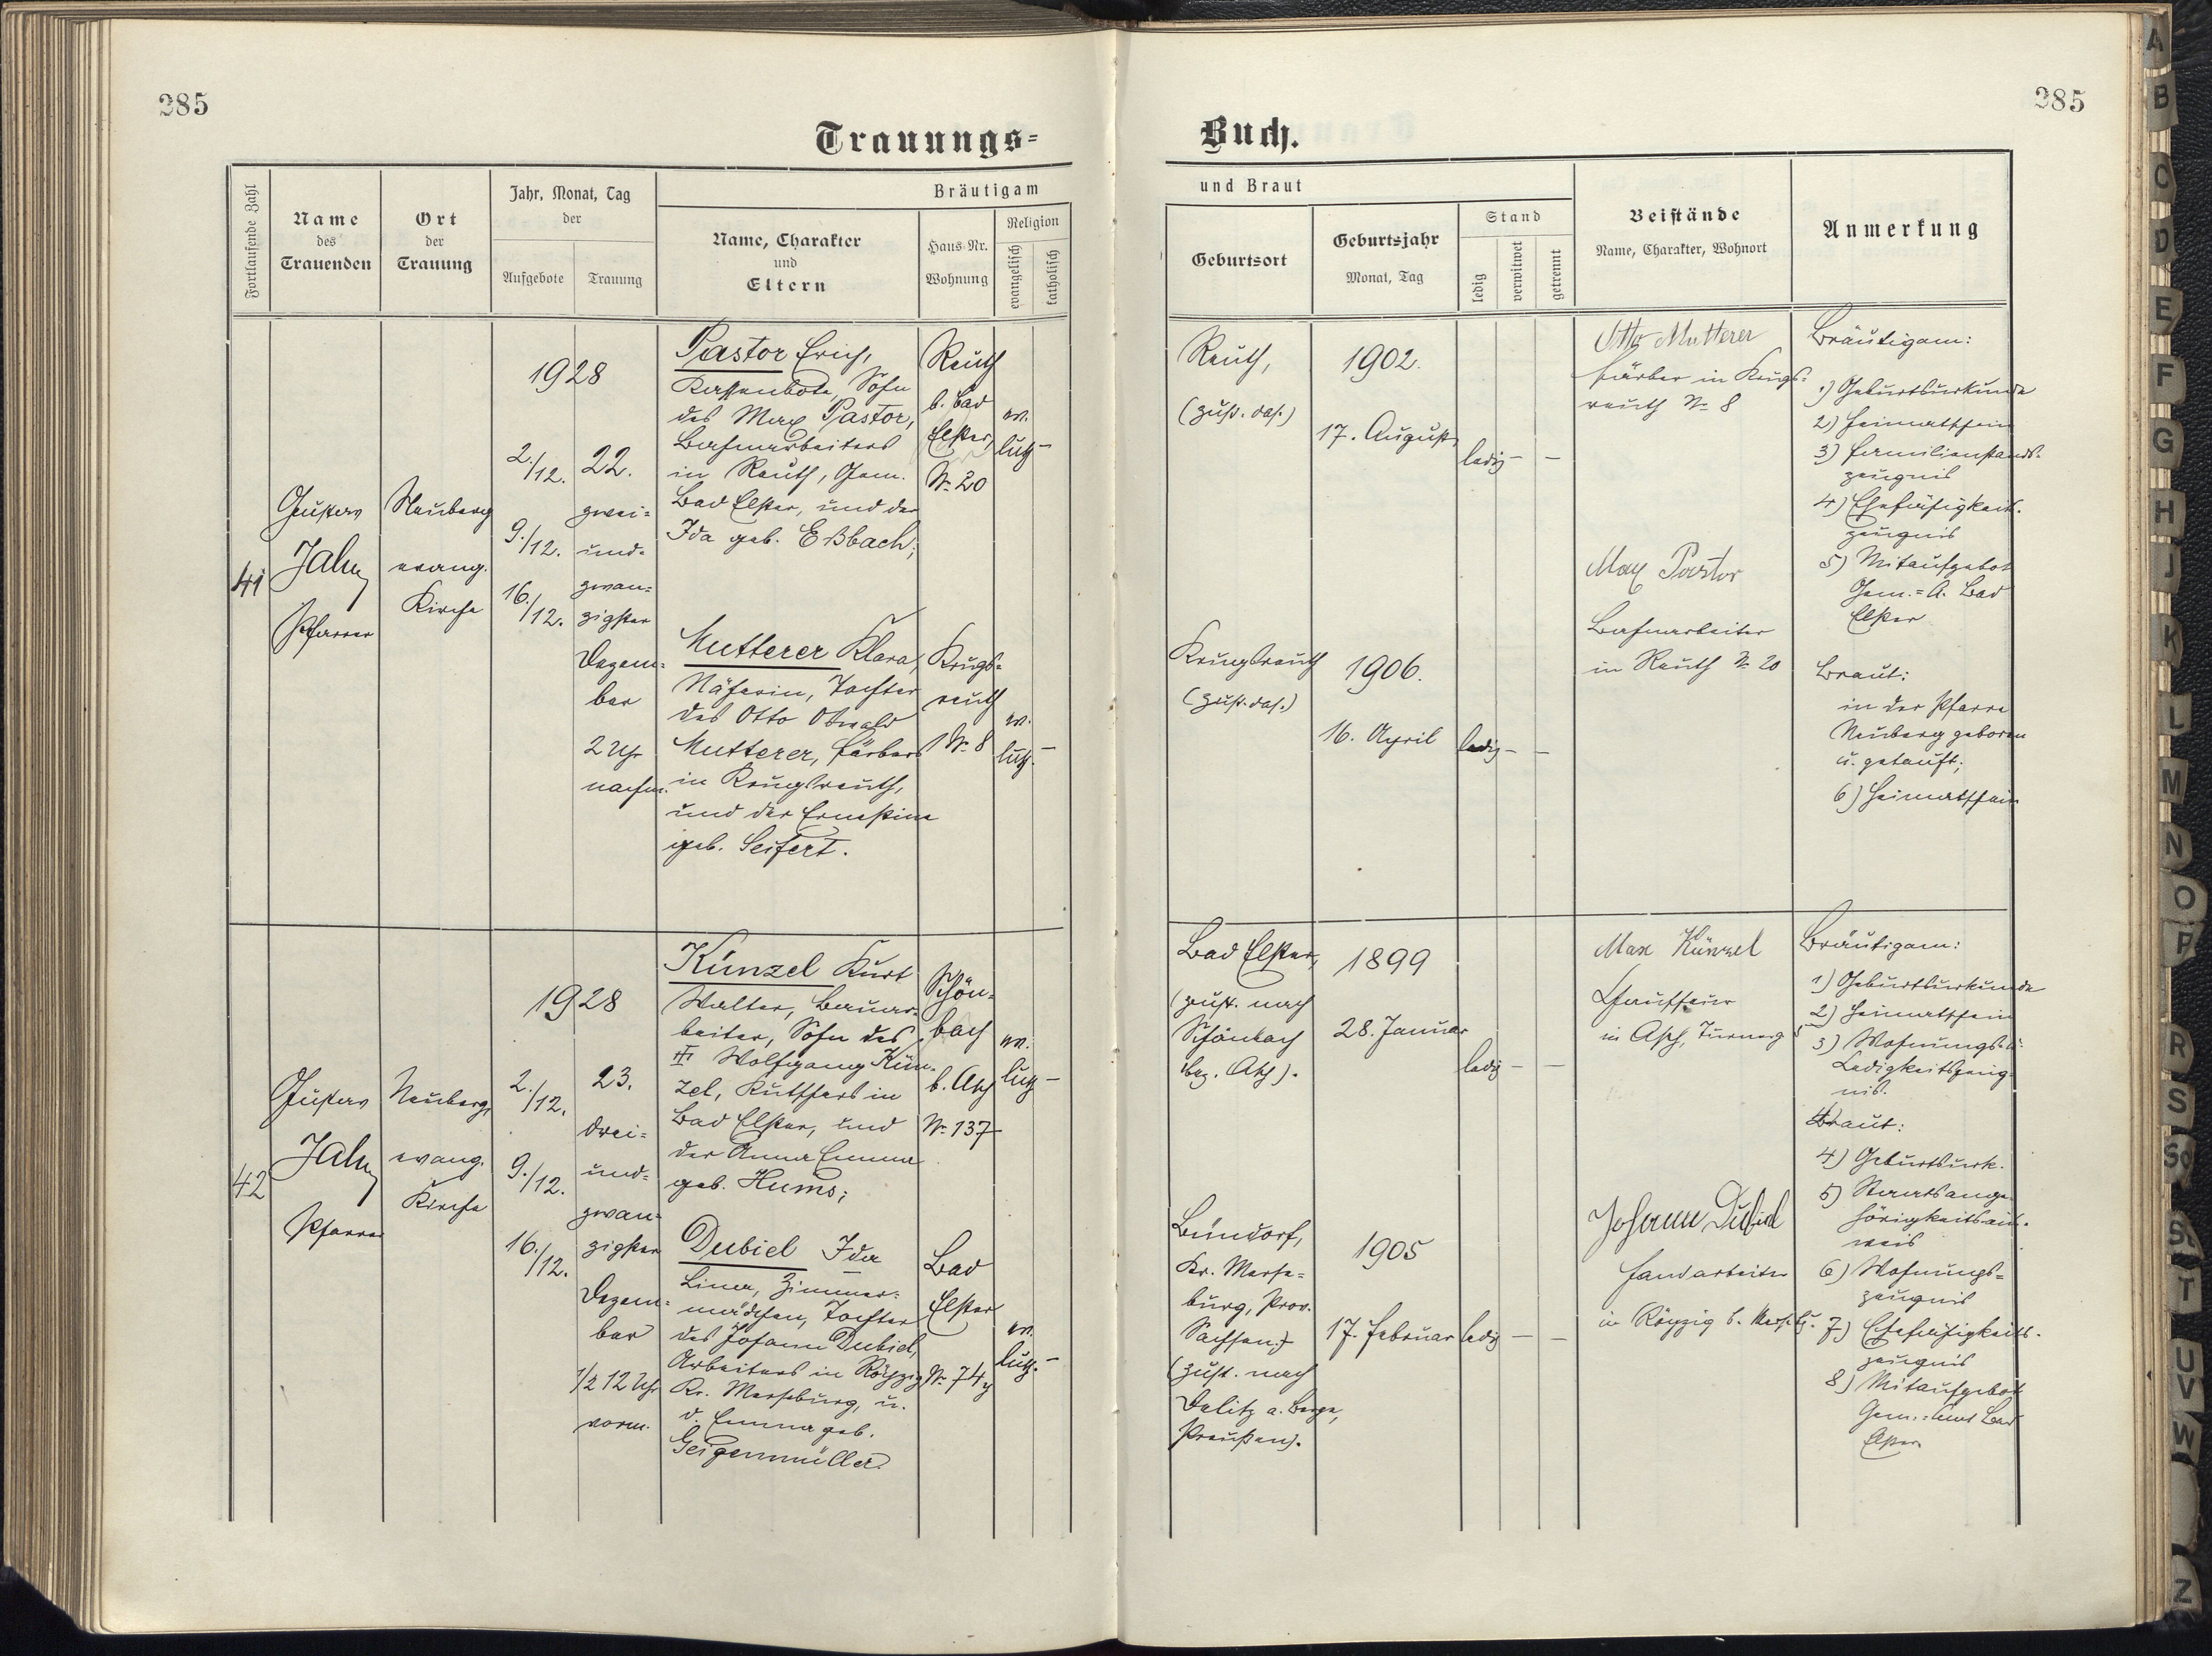 285
285
Trauungs-
Buch.
Fortlaufende Zahl
Name
des
Trauenden
Ort
der
Trauung
Jahr, Monat, Tag
der
Aufgebote
Trauung
Bräutigam
Name, Charakter
und
Eltern
Haus-Nr.
Wohnung
Religion
evangelisch
katholisch
und Braut
Geburtsort
Geburtsjahr
Monat, Tag
Stand
ledig
verwitwet
getrennt
Beistände
Name, Charakter, Wohnort
Anmerkung
41
Gustav
Jahn
Pfarrer
Neuberg
evang.
Kirche
1928
2./12.
9./12.
16./12.
22.
zwei-
und-
zwan-
zigster
Dezem-
ber
2 Uhr
nachm.
Pastor Erich,
Kassenbote, Sohn
des Max Pastor,
Bahnarbeiters
in Reuth, Gem.
Bad Elster, und der
Ida geb. Eßbach;
Reuth
b. Bad
Elster,
Nr. 20
ev.
luth. –
Mutterer Klara,
Näherin, Tochter
des Otto Oswald
Mutterer, Färbers
in Krugsreuth,
und der Ernestine
geb. Seifert.
Krugs-
reuth
Nr. 8
ev.
luth. –
Reuth,
(zust. das.)
1902.
17. August
ledig – –
Krugsreuth
(zust. das.)
1906.
16. April
ledig – –
Otto Mutterer
Färber in Krugs-
reuth Nr. 8
Max Pastor
Bahnarbeiter
in Reuth Nr. 20
Bräutigam:
1) Geburtsurkunde
2) Heimatschein
3) Familienstands-
zeugnis
4) Ehefähigkeits-
zeugnis
5) Mitaufgebot
Gem.-A. Bad
Elster
Braut:
in der Pfarre
Neuberg geboren
u. getauft;
6) Heimatschein
42
Gustav
Jahn
Pfarrer
Neuberg,
evang.
Kirche
1928
2./12.
9./12.
16./12.
23.
drei-
und-
zwan-
zigster
Dezem-
ber
1/2 12 Uhr
vorm.
Künzel Kurt
Walter, Bauar-
beiter, Sohn des
Wolfgang Kün-
zel, Kutschers in
Bad Elster, und
der Anna Emma
geb. Hums;
Schön-
bach
b. Asch
Nr. 137
ev.
luth –
Dubiel Ida
Lina, Zimmer-
mädchen, Tochter
des Johann Dubiel,
Arbeiters in Röpzig
Kr. Merseburg, u.
d. Emma geb.
Geigenmüller.
Bad
Elster
Nr. 74
ev.
luth. –
Bad Elster,
(zust. nach
Schönbach
Bez. Asch).
1899
28. Januar
ledig – –
Bündorf,
Kr. Merse-
burg, Prov.
Sachsen
(zust. nach
Delitz a. Berge,
Preußen).
1905
17. Februar
ledig – –
Max Künzel
Chauffeur
in Asch, Turnerg.
Johann Dubiel
Handarbeiter
in Röpzig b. Mersebg.
Bräutigam:
1) Geburtsurkunde
2) Heimatschein
3) Wohnungs- u.
Ledigkeitszeug-
nis.
Braut:
4) Geburtsurk.
5) Staatsange-
hörigkeitsaus-
weis
6) Wohnungs-
zeugnis
7) Ehefähigkeits-
zeugnis
8) Mitaufgebot
Gem.-Amt Bad
Elster
A
B
C
D
E
F
G
H
J
K
L
M
N
O
P
R
S
Sch
St
T
U
V
W
Z